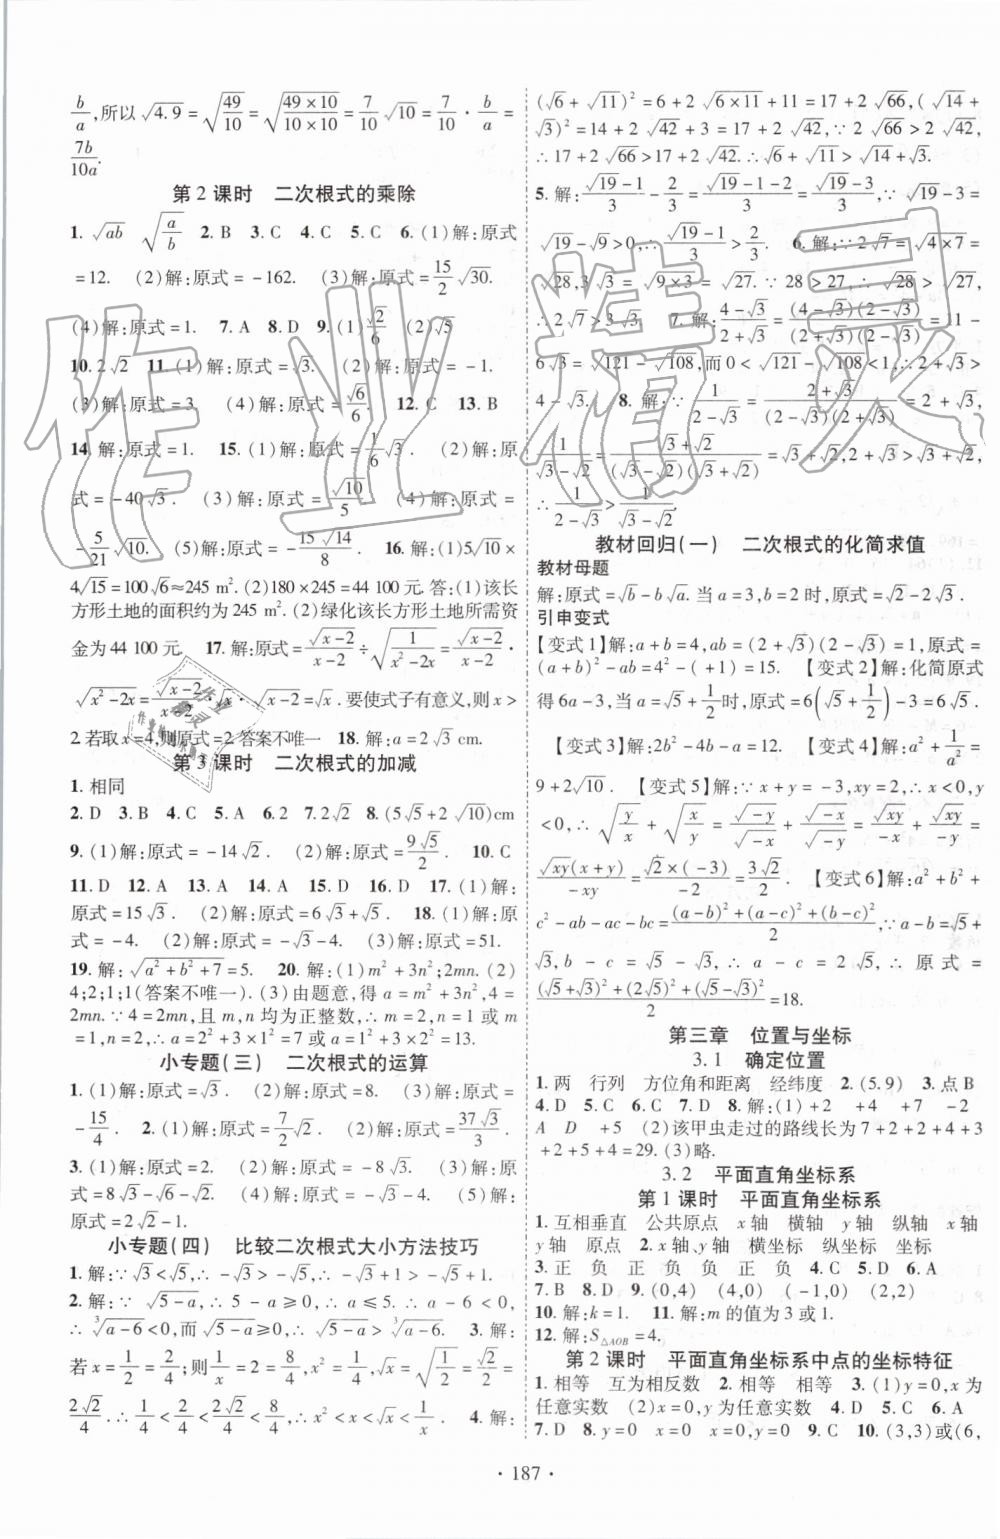 b/a,所以√4.9=√(49/10)=√((49×10)/(10×10))=7/10√10=7/10·b/a=
7b/10a.
第2课时 二次根式的乘除
1.√ab √(a/b) 2.B 3.C 4.C 5.C 6.(1)解:原式
=12. (2)解:原式=-162. (3)解:原式=15/2√30.
(4)解:原式=1. 7.A 8.D 9.(1)√2/6 (2)√5
10.2√2 11.(1)解:原式=√3. (2)解:原式=-1.
(3)解:原式=3. (4)解:原式=√6/6. 12.C 13.B
14.解:原式=1. 15.(1)解:原式=1/6√3. (2)解:原
式=-40√3. (3)解:原式=√10/5 (4)解:原式=
-5/21√10. (5)解:原式=-15√14/8. 16.解:(1)5√10×
4√15=100√6≈245 m². (2)180×245=44 100元.答:(1)该长
方形土地的面积约为245 m². (2)绿化该长方形土地所需资
金为44 100元. 17.解:原式=√(x-2)/(x-2)÷√(1/(x²-2x))=√(x-2)/(x-2)·
√(x²-2x)=√(x-2)/(x-2)·√x·√(x-2)=√x.要使式子有意义,则x>
2若取x=4,则原式=2.答案不唯一 18.解:a=2√3 cm.
第3课时 二次根式的加减
1.相同
2.D 3.B 4.C 5.A 6.2 7.2√2 8.(5√5+2√10)cm
9.(1)解:原式=-14√2. (2)解:原式=9√5/2. 10.C
11.D 12.A 13.A 14.A 15.D 16.D 17.(1)解:
原式=15√3. (2)解:原式=6√3+√5. 18.(1)解:原式
=-4. (2)解:原式=-√3-4. (3)解:原式=51.
19.解:√(a²+b²+7)=5. 20.解:(1)m²+3n²;2mn. (2)
4;2;1;1(答案不唯一).(3)由题意,得a=m²+3n²,4=
2mn.∵4=2mn,且m,n均为正整数,∴m=2,n=1或m
=1,n=2,∴a=2²+3×1²=7或a=1²+3×2²=13.
小专题(三) 二次根式的运算
1.(1)解:原式=√3. (2)解:原式=8. (3)解:原式=
-15/4. 2.(1)解:原式=7/2√2. (2)解:原式=37√3/3.
3.(1)解:原式=2. (2)解:原式=-8√3. (3)解:原
式=8√3-√6-√2. (4)解:原式=4-2√2. (5)解:
原式=2√2-1.
小专题(四) 比较二次根式大小方法技巧
1.解:∵√3<√5,∴-√3>-√5,∴-√3+1>-√5+1.
2.解:∵√(5-a),∴5-a≥0,∴a≤5.∴a-6<0,
∴∛(a-6)<0,而√(5-a)≥0,∴√(5-a)>∛(a-6). 3.解:
若x=1/2=2/4;则1/x=2=8/4,x²=1/4,√x=√(1/2)=√2/2=
2√2/4.∴1/4<2/4<2√2/4<8/4,∴x²<x<√x<1/x. 4.解:
(√6+√11)²=6+2√(6×11)+11=17+2√66,(√14+
√3)²=14+2√42+3=17+2√42,∵2√66>2√42,
∴17+2√66>17+2√42.∴√6+√11>√14+√3.
5.解:(√19-1)/3-2/3=(√19-1-2)/3=(√19-3)/3,∵√19-3=
√19-√9>0,∴(√19-1)/3>2/3. 6.解:∵2√7=√(4×7)=
√28,3√3=√(9×3)=√27.∵28>27,∴√28>√27,
∴2√7>3√3. 7.解:(4-√3)/(2+√3)=(4-√3)(2-√3)/(2+√3)(2-√3)=11-
6√3=√121-√108,而0<√121-√108<1,∴2+√3>
4-√3. 8.解:∵1/(2-√3)=(2+√3)/(2-√3)(2+√3)=2+√3,
1/(√3-√2)=(√3+√2)/(√3-√2)(√3+√2)=√3+√2,2+√3>√3+√2,
∴1/(2-√3)>1/(√3-√2).
教材回归(一) 二次根式的化简求值
教材母题
解:原式=√b-b√a.当a=3,b=2时,原式=√2-2√3.
引申变式
【变式1】解:a+b=4,ab=(2+√3)(2-√3)=1,原式=
(a+b)²-ab=4²-(+1)=15. 【变式2】解:化简原式
得6a-3,当a=√5+1/2时,原式=6(√5+1/2)-3=6√5.
【变式3】解:2b²-4b-a=12. 【变式4】解:a²+1/a²=
9+2√10. 【变式5】解:∵x+y=-3,xy=2,∴x<0,y
<0,∴√(y/x)+√(x/y)=√-y/√-x+√-x/√-y=√xy/-x+√xy/-y=
√xy(x+y)/-xy=√2×(-3)/-2=3√2/2. 【变式6】解:a²+b²+
c²-ab-ac-bc=((a-b)²+(a-c)²+(b-c)²)/2,∵a-b=√5+
√3,b-c=√5-√3,∴a-c=2√5,∴原式=
((√5+√3)²+(2√5)²+(√5-√3)²)/2=18.
第三章 位置与坐标
3.1 确定位置
1.两 行列 方位角和距离 经纬度 2.(5.9) 3.点B
4.D 5.C 6.C 7.D 8.解:(1)+2 +4 +7 -2
A D +5 (2)该甲虫走过的路线长为7+2+2+4+3
+2+5+4=29. (3)略.
3.2 平面直角坐标系
第1课时 平面直角坐标系
1.互相垂直 公共原点 x轴 横轴 y轴 纵轴 x轴
y轴 原点 2.x轴、y轴 横坐标 纵坐标 纵坐标
3.正 负 正 负 负 正 负 4.C 5.D 6.A
7.B 8.D 9.(0,4) (4,0) (-1,0) (2,2)
10.解:k=1. 11.解:m的值为3或1.
12.解:S△AOB=4.
第2课时 平面直角坐标系中点的坐标特征
1.相等 互为相反数 2.相等 相等 3.(1)y=0,x为
任意实数 (2)x=0,y为任意实数 4.D 5.C 6.A
7.D 8.y=0 x=0 x=0,y=0 9.C 10.(3,3)或(6,
·187·
作业精灵